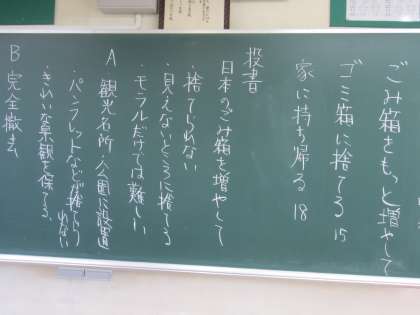 ごみ箱をもっと増やして
ゴミ箱に捨てる 15
家に持ち帰る 18
投書
日本のごみ箱を増やして
・捨てられない
・見えないところに捨てる
・モラルだけでは難しい
A 観光名所・公園に設置
・パンフレットなどが捨てられない
・きれいな景観を保てる
B 完全撤去